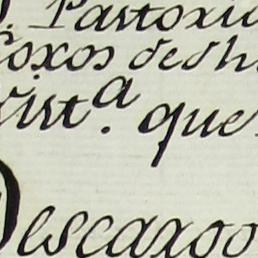 Pastoxi
oxos desh
rist.ª que
Descaxgo